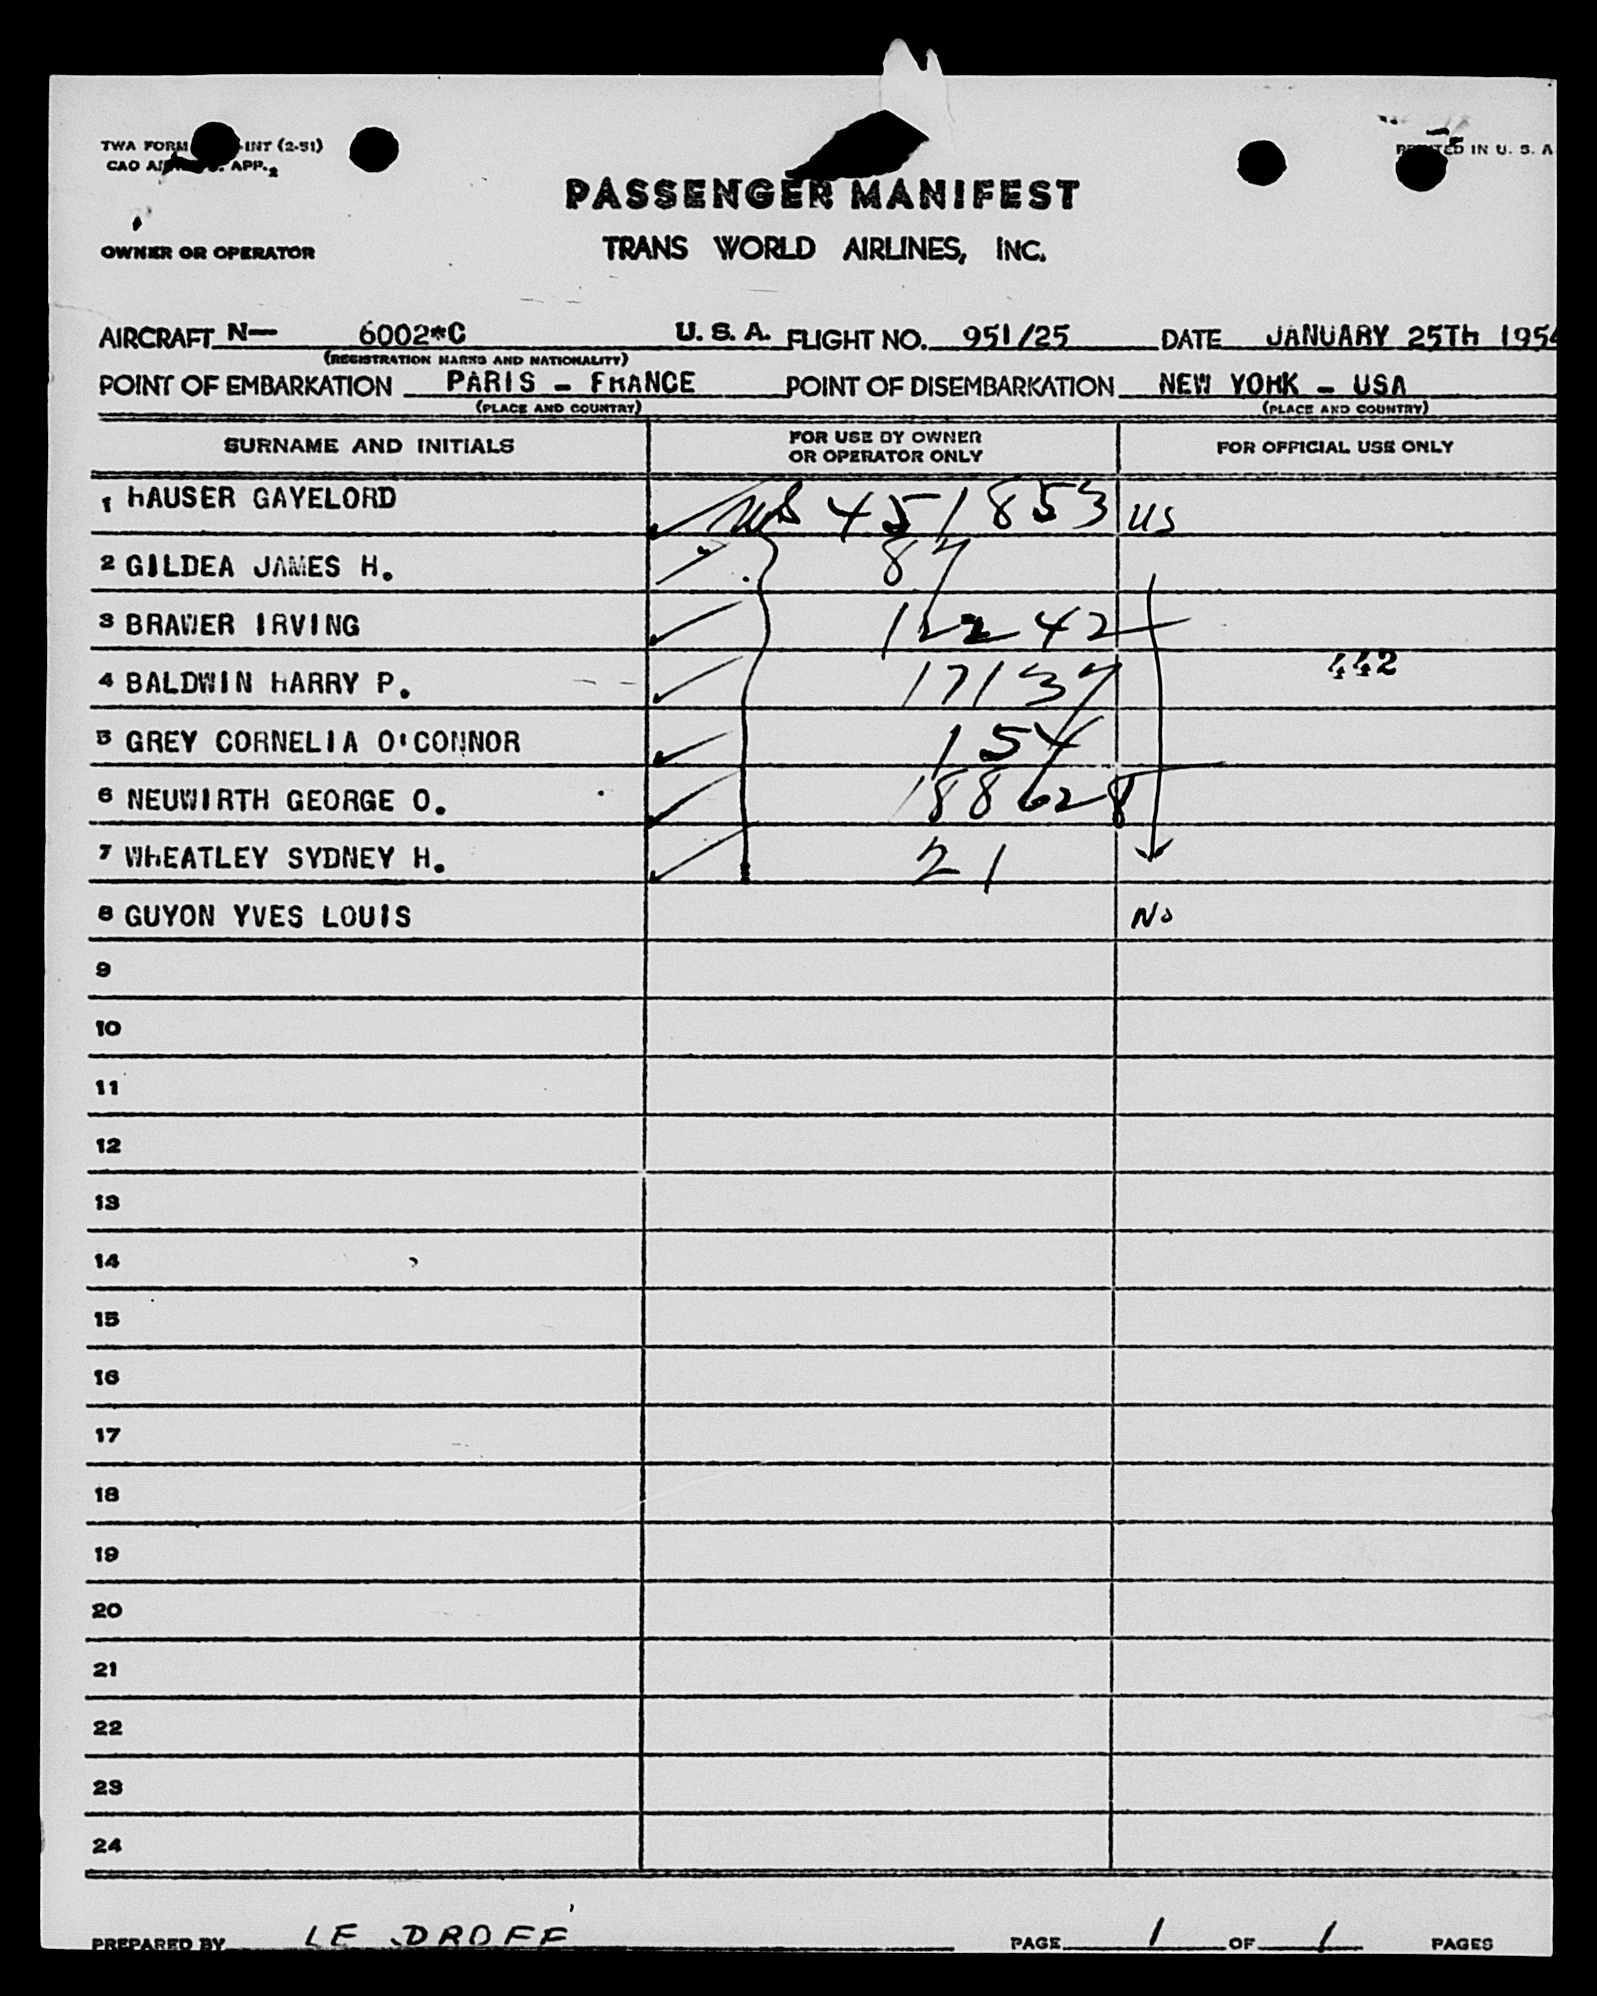 TWA FORM INT (2-51)
CAO APP. 2
PRINTED IN U. S. A
PASSENGER MANIFEST
OWNER OR OPERATOR
TRANS WORLD AIRLINES, INC.
AIRCRAFT N— 6002*C U. S. A. FLIGHT NO. 951/25 DATE JANUARY 25TH 1954
(REGISTRATION MARKS AND NATIONALITY)
POINT OF EMBARKATION PARIS - FRANCE POINT OF DISEMBARKATION NEW YORK - USA
(PLACE AND COUNTRY) (PLACE AND COUNTRY)
SURNAME AND INITIALS FOR USE BY OWNER OR OPERATOR ONLY FOR OFFICIAL USE ONLY
1 HAUSER GAYELORD US 451853 US
2 GILDEA JAMES H. 87
3 BRAWER IRVING 12242
4 BALDWIN HARRY P. 17137 442
5 GREY CORNELIA O'CONNOR 154
6 NEUWIRTH GEORGE O. 188628
7 WHEATLEY SYDNEY H. 21
8 GUYON YVES LOUIS No
9
10
11
12
13
14
15
16
17
18
19
20
21
22
23
24
PREPARED BY LE DROFF PAGE 1 OF 1 PAGES